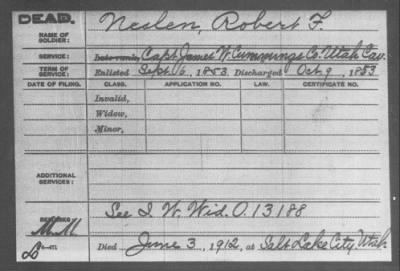 DEAD.
NAME OF SOLDIER: Neslen, Robert F.
SERVICE: Late rank, Capt. James W. Cummings Co. Utah Cav.
TERM OF SERVICE: Enlisted Sept. 6, 1853, Discharged Oct 9, 1853
DATE OF FILING. CLASS. APPLICATION NO. LAW. CERTIFICATE NO.
Invalid,
Widow,
Minor,
ADDITIONAL SERVICES:
See I. W. Wid. O. 13188
REMARKS:
M.M
Died June 3, 1912, at Salt Lake City, Utah